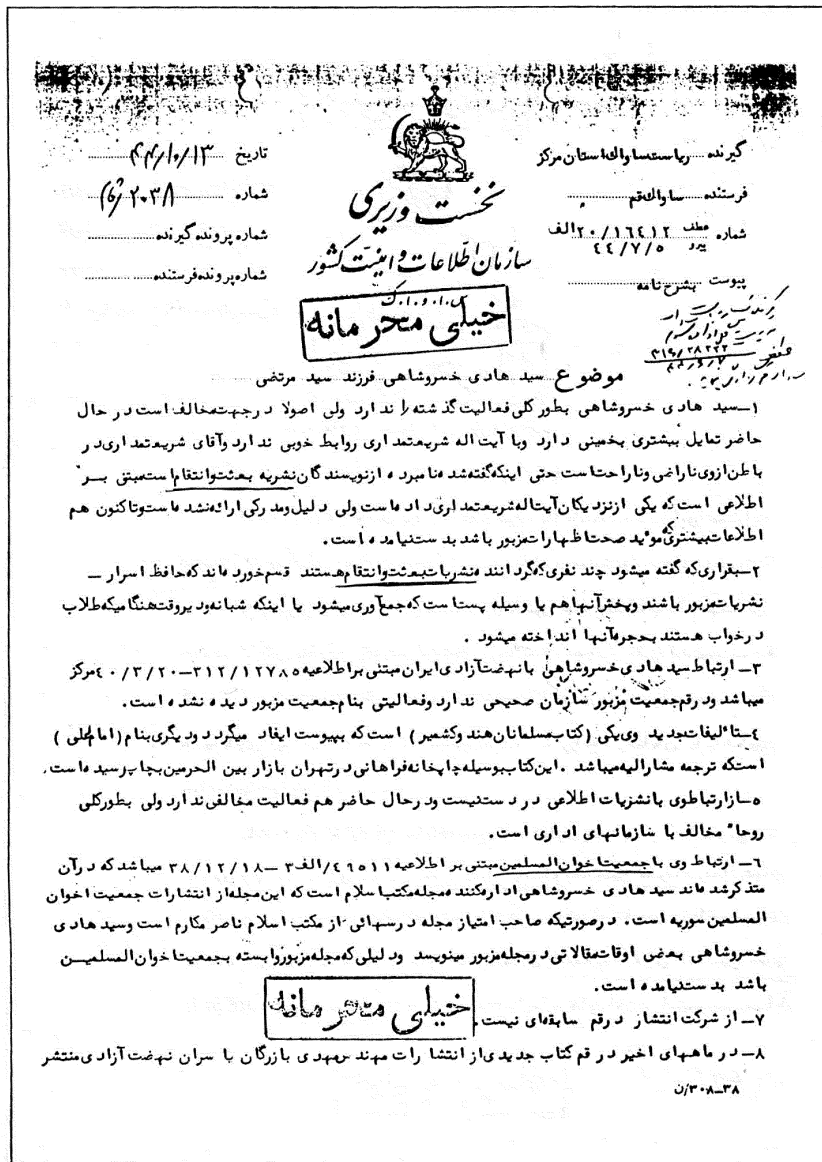 گیرنده ریاست ساواك استان مرکز
فرستنده ساواك قم
شماره عطف ۲۰/۱۶۴۱۲ الف
پیرو ۴۴/۷/۵
پیوست بشرح نامه
نخست وزیری
سازمان اطلاعات و امنیت کشور
س.ا.و.ا.ک
تاریخ ۴۴/۱۰/۱۳
شماره ۲۰۳۸
شماره پرونده گیرنده
شماره پرونده فرستنده
خیلی محرمانه
موضوع سید هادی خسروشاهی فرزند سید مرتضی
۱ـ سید هادی خسروشاهی بطور کلی فعالیت گذشته را ندارد ولی اصولا درجهت مخالف است در حال
حاضر تمایل بیشتری بخمینی دارد وبا آیت اله شریعتمداری روابط خوبی ندارد وآقای شریعتمداری در
باطن ازوی ناراضی وناراحت است حتی اینکه گفته شده نامبرده ازنویسندگان نشریه بعثت وانتقام است مبتنی بــر
اطلاعی است که یکی ازنزدیکان آیت اله شریعتمداری داده است ولی دلیل ومدرکی ارائه نشده است وتاکنون هم
اطلاعات بیشتری که موءید صحت اظهارات مزبور باشد بدست نیامده است.
۲ـ بقراری که گفته میشود چند نفری که گرداننده نشریات بعثت وانتقام هستند قسم خورده اند که حافظ اسرار ـ
نشریات مزبور باشند وپخش آنها هم یا وسیله پست است که جمع آوری میشود یا اینکه شبانه ودیروقت هنگامیکه طلاب
درخواب هستند بحجره آنها انداخته میشود .
۳ـ ارتباط سید هادی خسروشاهی با نهضت آزادی ایران مبتنی براطلاعیه ۳۱۲/۱۲۷۸۵ـ۴۰/۳/۲۰ مرکز
میباشد ودرقم جمعیت مزبور سازمان صحیحی ندارد وفعالیتی بنام جمعیت مزبور دیده نشده است.
۴ـ تاٴلیفات جدید وی یکی (کتاب مسلمانان هند وکشمیر) است که بپیوست ایفاد میگردد ودیگری بنام (امام علی )
است که ترجمه مشارالیه میباشد . این کتاب بوسیله چاپخانه فراهانی درتهران بازار بین الحرمین بچاپ رسیده است.
۵ـ ازارتباط وی با نشریات اطلاعی در دست نیست ودرحال حاضر هم فعالیت مخالفی ندارد ولی بطورکلی
روحا" مخالف با سازمانهای اداری است.
۶ـ ارتباط وی با جمعیت اخوان المسلمین مبتنی بر اطلاعیه ۴۶۵۱۱/الف۳ ـ۳۸/۱۲/۱۸ میباشد که درآن
متذکرشده اند سید هادی خسروشاهی اداره کننده مجله مکتب اسلام است که این مجله از انتشارات جمعیت اخوان
المسلمین سوریه است. درصورتیکه صاحب امتیاز مجله درسهائی از مکتب اسلام ناصر مکارم است وسید هادی
خسروشاهی بعضی اوقات مقالاتی درمجله مزبور مینویسد ودلیلی که مجله مزبوروابسته بجمعیت اخوان المسلمیــن
باشد بدست نیامده است.
۷ـ از شرکت انتشار درقم سابقه ای نیست.
خیلی محرمانه
۸ـ در ماههای اخیر درقم کتاب جدیدی از انتشارات مهندس مهدی بازرگان با سران نهضت آزادی منتشر
۳۸ـ۳۰۸/ن